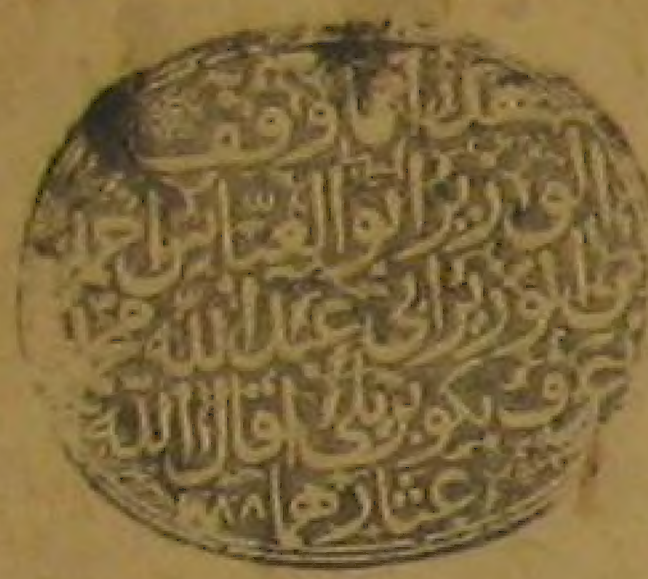 هذا ما وقف
الوزير أبو العباس أحمد
بن الوزير أبي عبد الله محمد
عرف بكوبريلي أقال الله
عثارهما ١٠٨٨